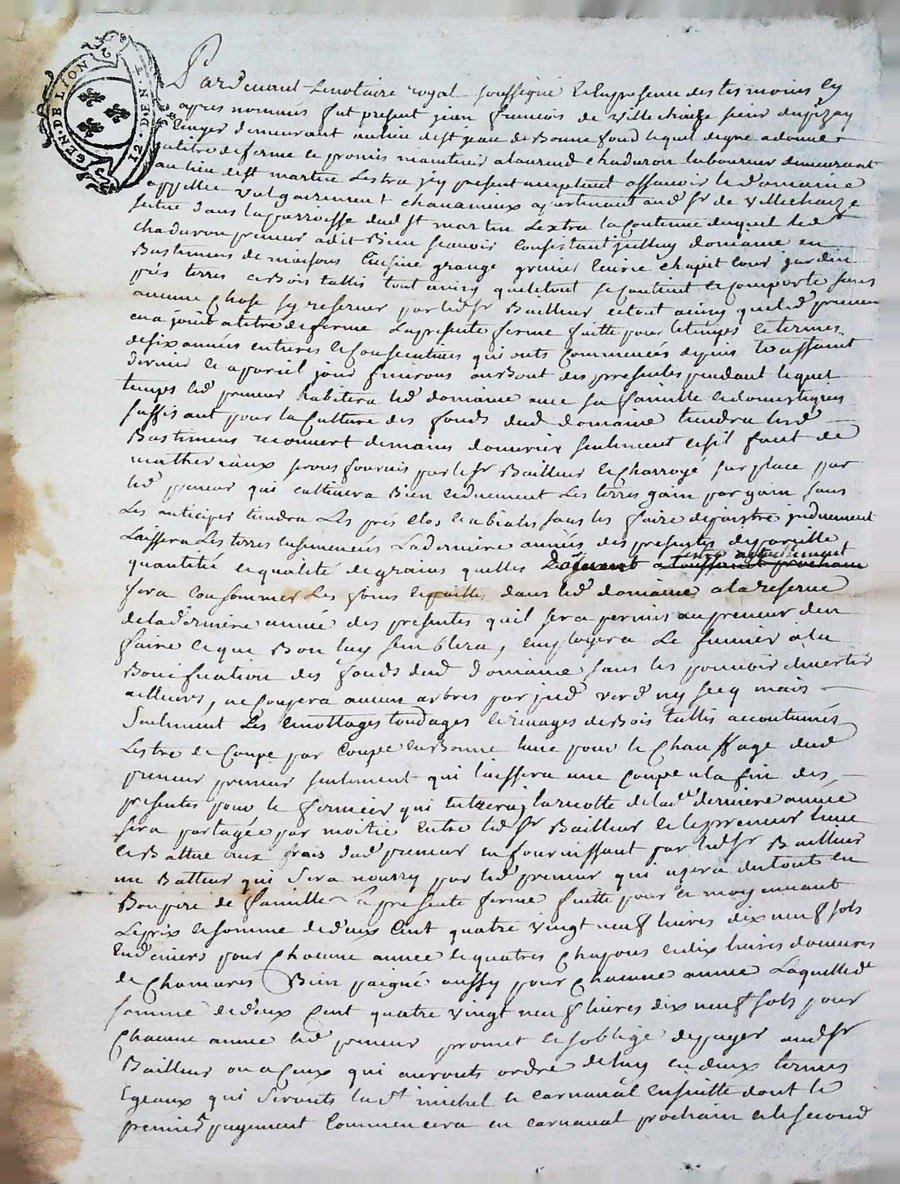 GEN. DE LION
12 DEN.T
Pardevant Le notaire royal soussigné et En presence des tesmoins cy
apres nommés fut present jean francois de Villechaize sieur
demeurant au lieu de st jean de Bonnefond lequel de gre a donné
a titre de ferme et promis maintenir a laurend chaduron laboureur demeurant
au lieu de st martin Lestra icy present acceptant assavoir le domaine
appellée Vulgairement chanameux apartenant aud sr de Villechaize
scitué dans la parroisse dud st martin Lextra la Contenue duquel led
chaduron preneur a dit Bien scavoir Consistant jcelluy domaine en
Bastimens de maisons Cuisine grange grenier Ecurie chapit Cour jardin
prés terres et Bois taillis tout ainsy quele tout se Contient et Comporte sans
aucune chose sy reserver par led sr Bailleur et tout ainsy que led preneur
en a jouit a titre de ferme La presente ferme faitte pour le temps et termes
de six années entieres et Consecutives qui onts Commencés depuis toussaint
dernier et a pareil jour finirons au Bout des presentes pendant lequel
temps led preneur habitera led domaine avec sa famille et domestiques
suffisant pour la Culture des fonds dud domaine tiendra lesd
Bastimens de mains d'ouvrier seulement et sil faut de
matheriaux serons fournis par le sr Bailleur et Charroyé sur place par
led preneur qui cultivera Bien et duement Les terres gain par gain sans
Les anticiper tiendra Les prés Clos et sans les faire jnduement
Laissera Les terres ensemencées La derniere année des presentes de pareille
quantité et qualité de grains quelles
fera Consommer Les foins et paille dans led domaine a la reserve
de la derniere année des presentes quil sera permis au preneur den
faire ce que Bon luy semblera, employera Le fumier a la
Bonification des fonds dud domaine sans les pouvoir divertir
ailleurs, ne Coupera aucuns arbres par pied verd ny secq mais
seulement Les Emottages tondages et de Bois taillis accoutumés
Lestre de Coupe par Coupe en Bonne lune pour le Chauffage dud
preneur preneur seulement qui laissera une Coupe a la fin des
presentes pour le fermier qui la de lad derniere année
sera partagée par moitié Entre led sr Bailleur et le preneur
et Battue aux frais dud preneur en fournissant par led sr Bailleur
un Batteur qui sera nourry par led preneur qui usera du tout en
Bon pere de famille La presente ferme faitte pour et moyennant
Le prix et somme de deux Cent quatre vingt neuf livres dix neuf sols
deniers pour chacune année et quatres Chapons et dix livres d'oeuvres
de Chanvres Bien paigné aussy pour Chacune année Laquelle d
somme de deux Cent quatre vingt neuf livres dix neuf sols pour
Chacune année led preneur promet et s'oblige de payer aud sr
Bailleur ou a Ceux qui aurons ordre de luy en deux termes
Egeaux qui serons la st michel et carnaval Ensuitte dont le
premier payement Commencera en carnaval prochain et le second